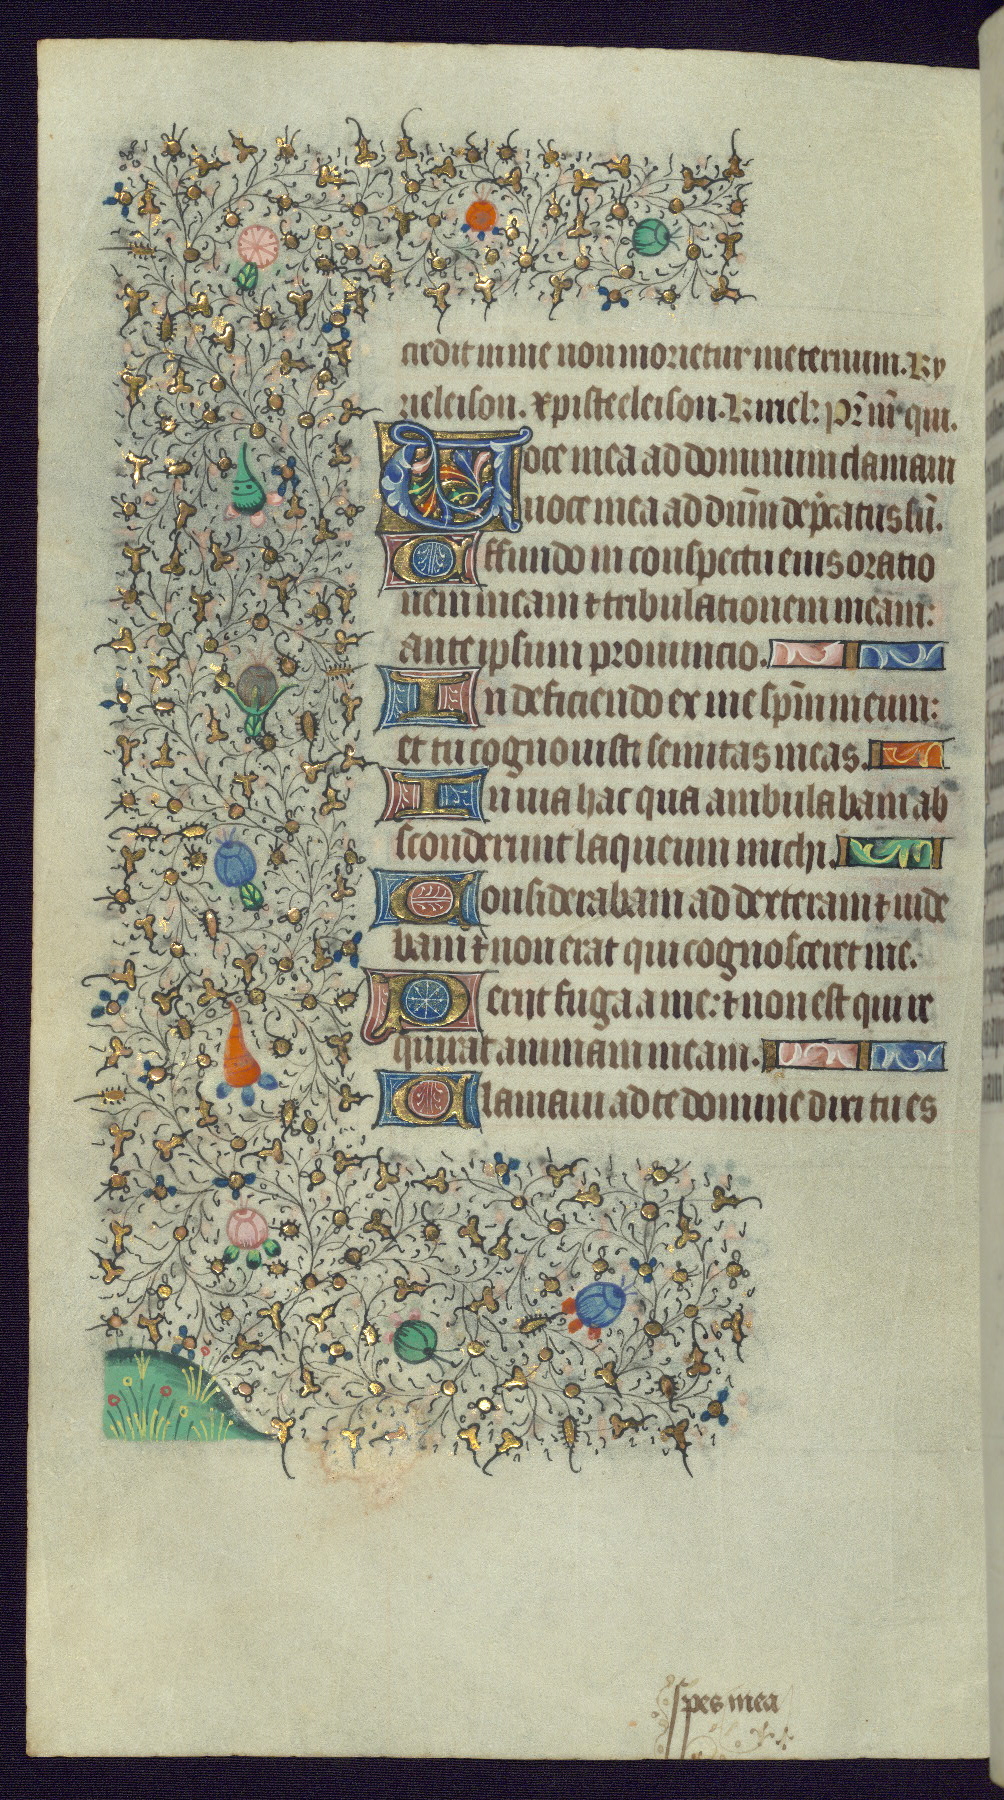 credit in me non morietur in eternum. Ky
rieleison. xp̄isteeleison. Kiriel̄. Pr̄ nr̄ qui.
Uoce mea ad dominum clamaui
uoce mea ad dūm dep̄catus sū.
Effundo in conspectu eius oratio
nem meam ⁊ tribulationem meam:
ante ipsum pronuncio.
In deficiendo ex me sp̄m meum:
et tu cognouisti semitas meas.
In uia hac qua ambulabam ab
sconderunt laqueum michi.
Considerabam ad dexteram ⁊ uide
bam ⁊ non erat qui cognosceret me.
Perijt fuga a me: ⁊ non est qui re
quirat animam meam.
Clamaui ad te domine dixi tu es
spes mea